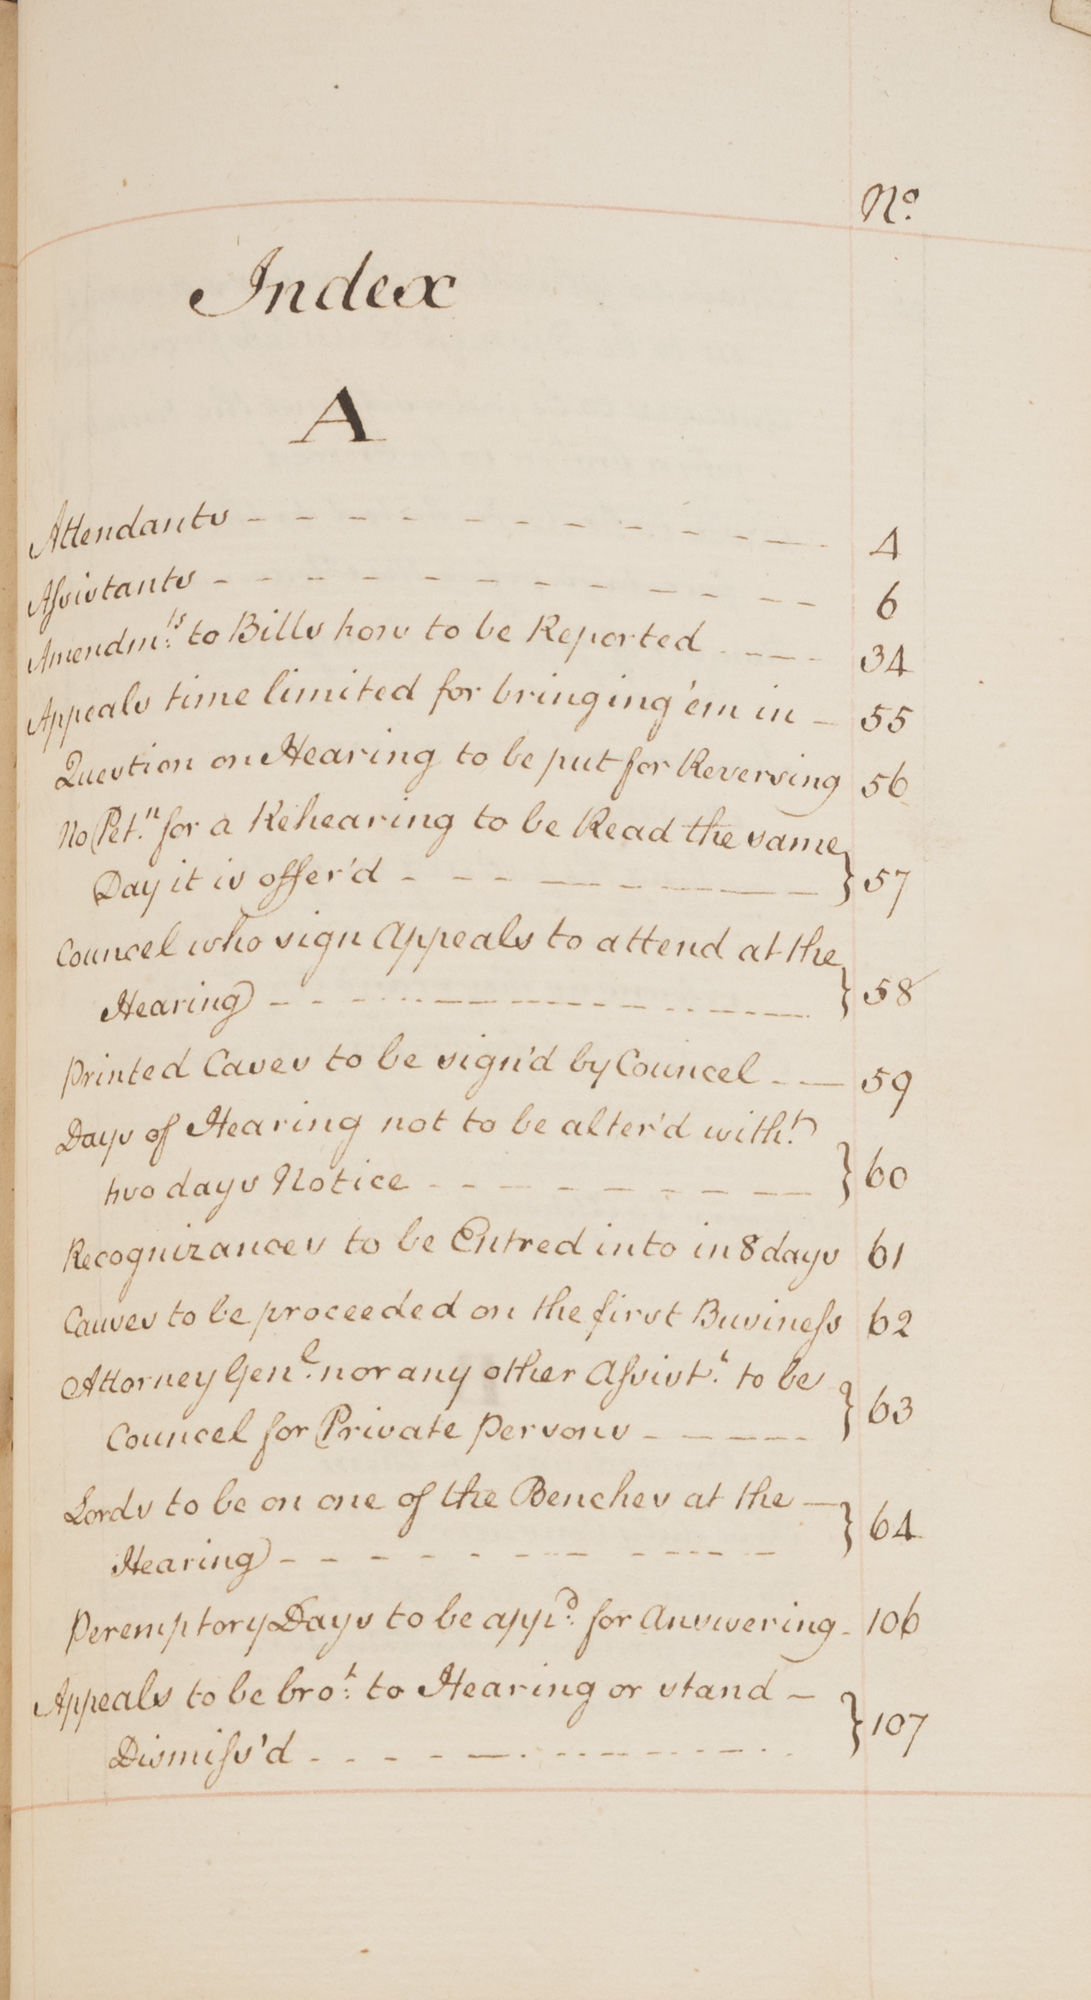 No.
Index
A
Attendants - - - - - - - - - - - 4
Assistants - - - - - - - - - - - 6
Amendmts. to Bills how to be Reported - - - 34
Appeals time limited for bringing 'em in - 55
Question on Hearing to be put for Reversing 56
No Petn. for a Rehearing to be Read the same
Day it is offer'd - - - - - - - - } 57
Councel who sign Appeals to attend at the
Hearing - - - - - - - - - - - } 58
Printed Cases to be sign'd by Councel - - 59
Days of Hearing not to be alter'd witht.
two days Notice - - - - - - - - - } 60
Recognizances to be Entred into in 8 days 61
Causes to be proceeded on the first Business 62
Attorney Genl. nor any other Assistt. to be
Councel for Private Persons - - - - - } 63
Lords to be on one of the Benches at the -
Hearing - - - - - - - - - - } 64
Peremptory Days to be appd. for Answering - 106
Appeals to be brot. to Hearing or stand -
Dismiss'd - - - - - - - - - - } 107